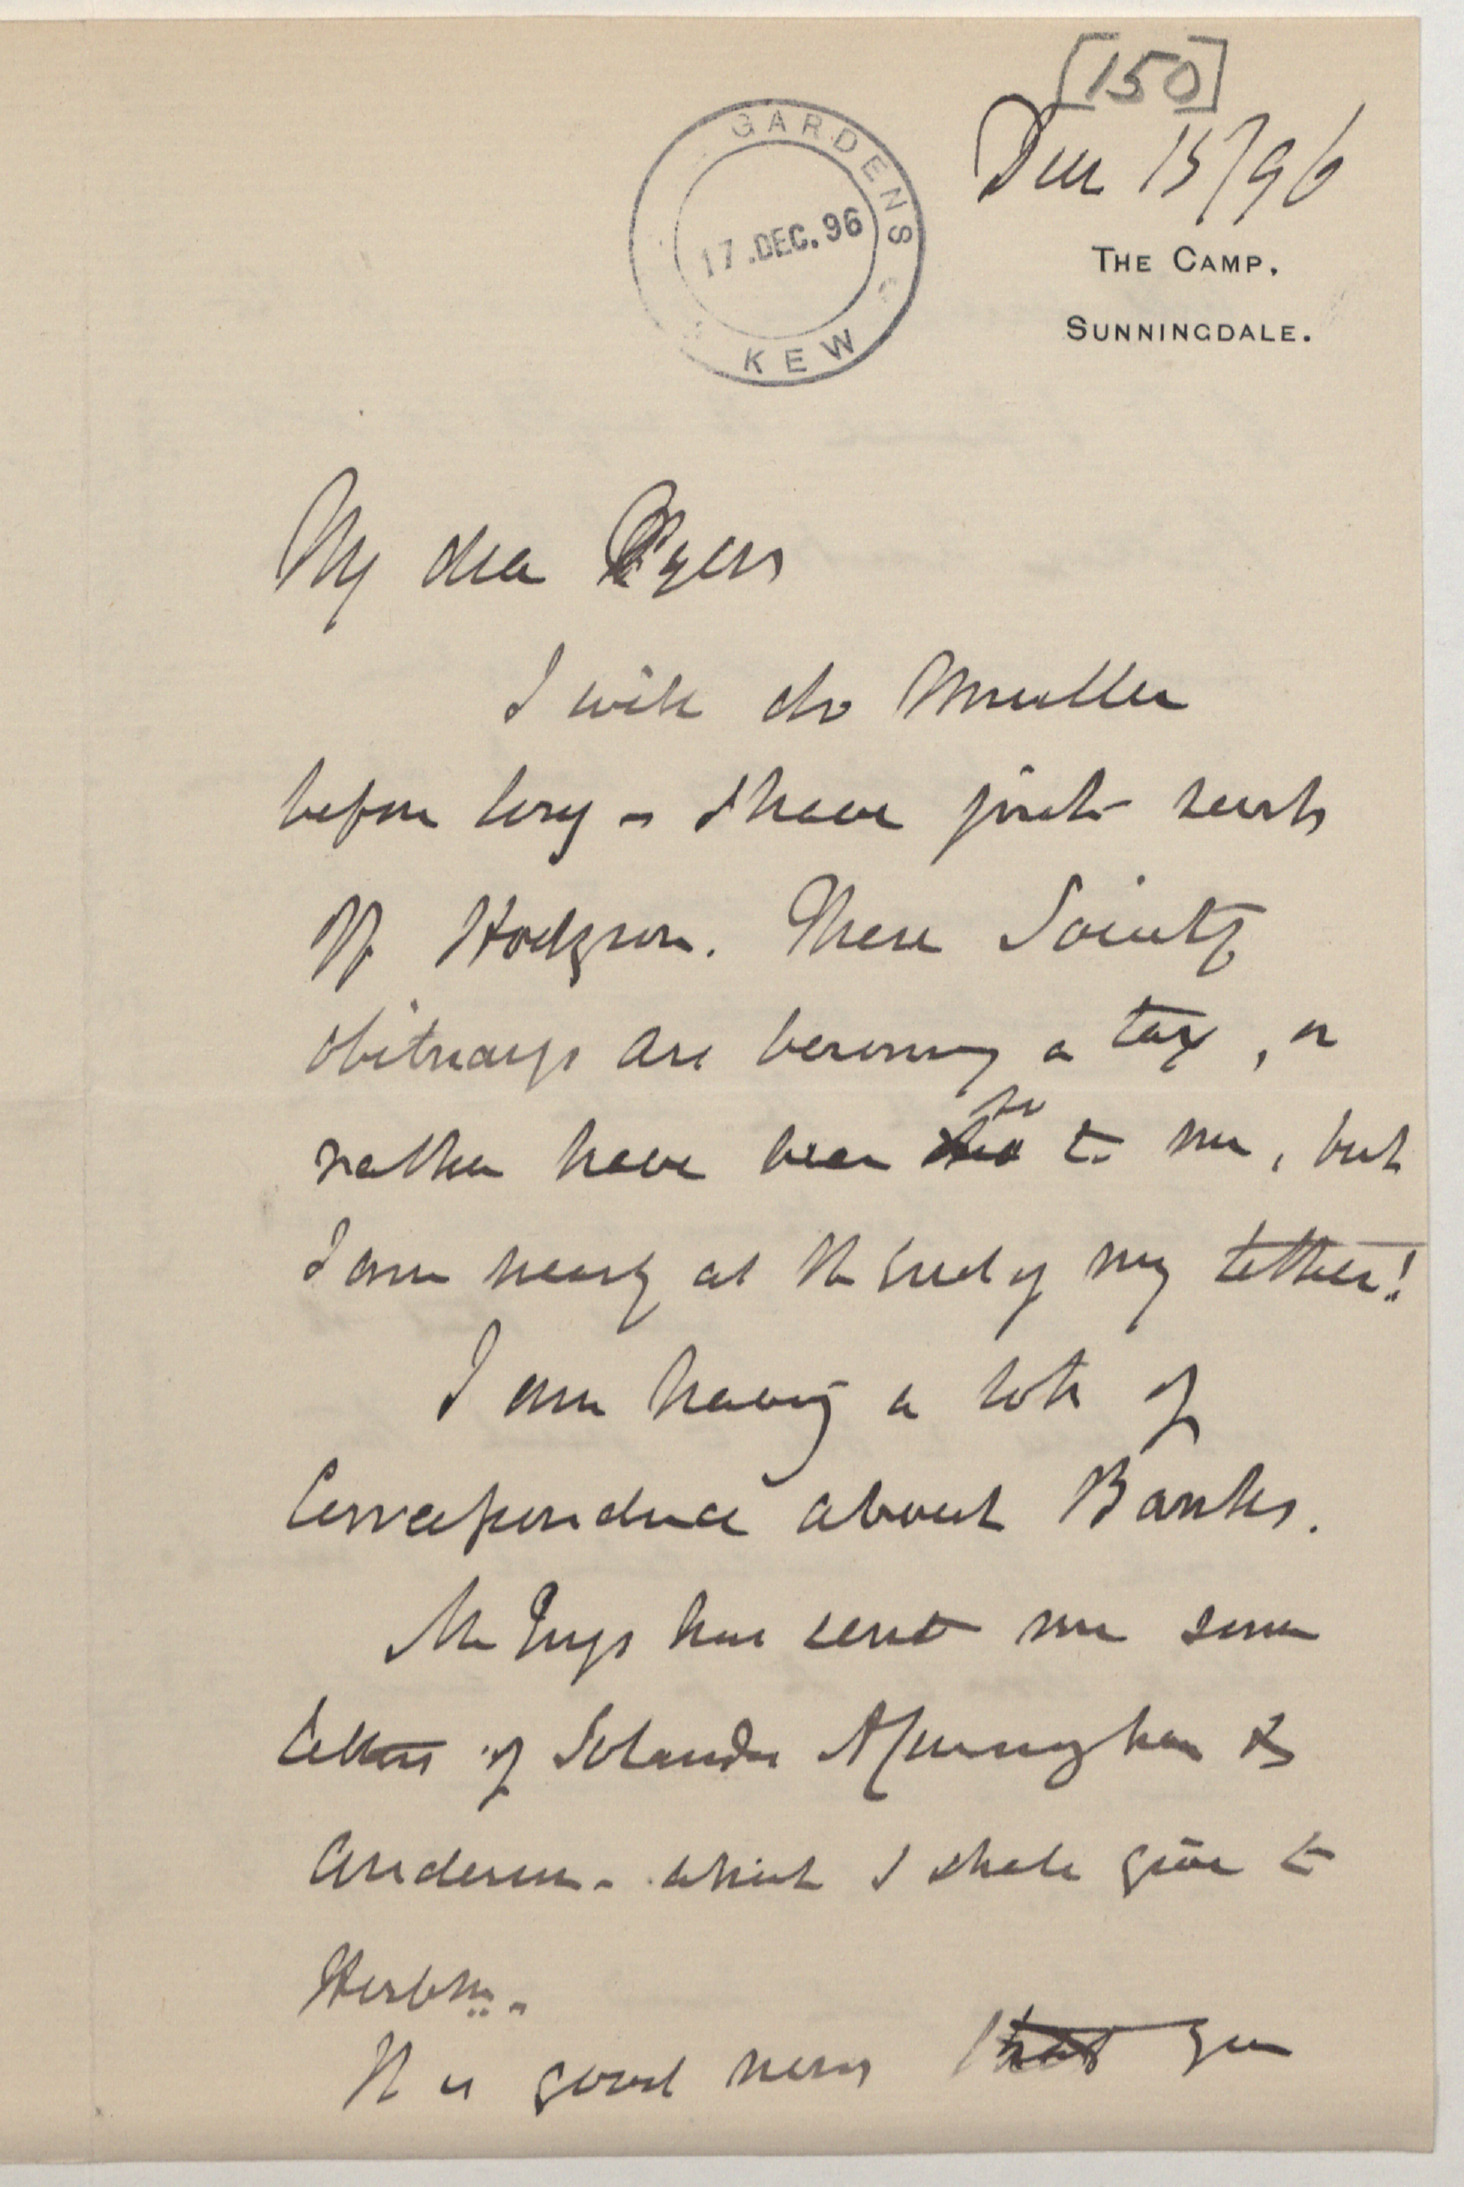 [150]
Dec 15/96
GARDENS
17.DEC.96
KEW
THE CAMP,
SUNNINGDALE.
My dear Dyer
I will do Mueller
before long - I have just sent
off Hodgson. These Society
obituarys are becoming a tax, or
rather have been so to me, but
I am nearly at the end of my tether!
I am having a lot of
Correspondence about Banks.
Mr has sent me some
letters of Solander A Cunningham &
Anderson - which I shall give to
Herbm. -
It is good news that you